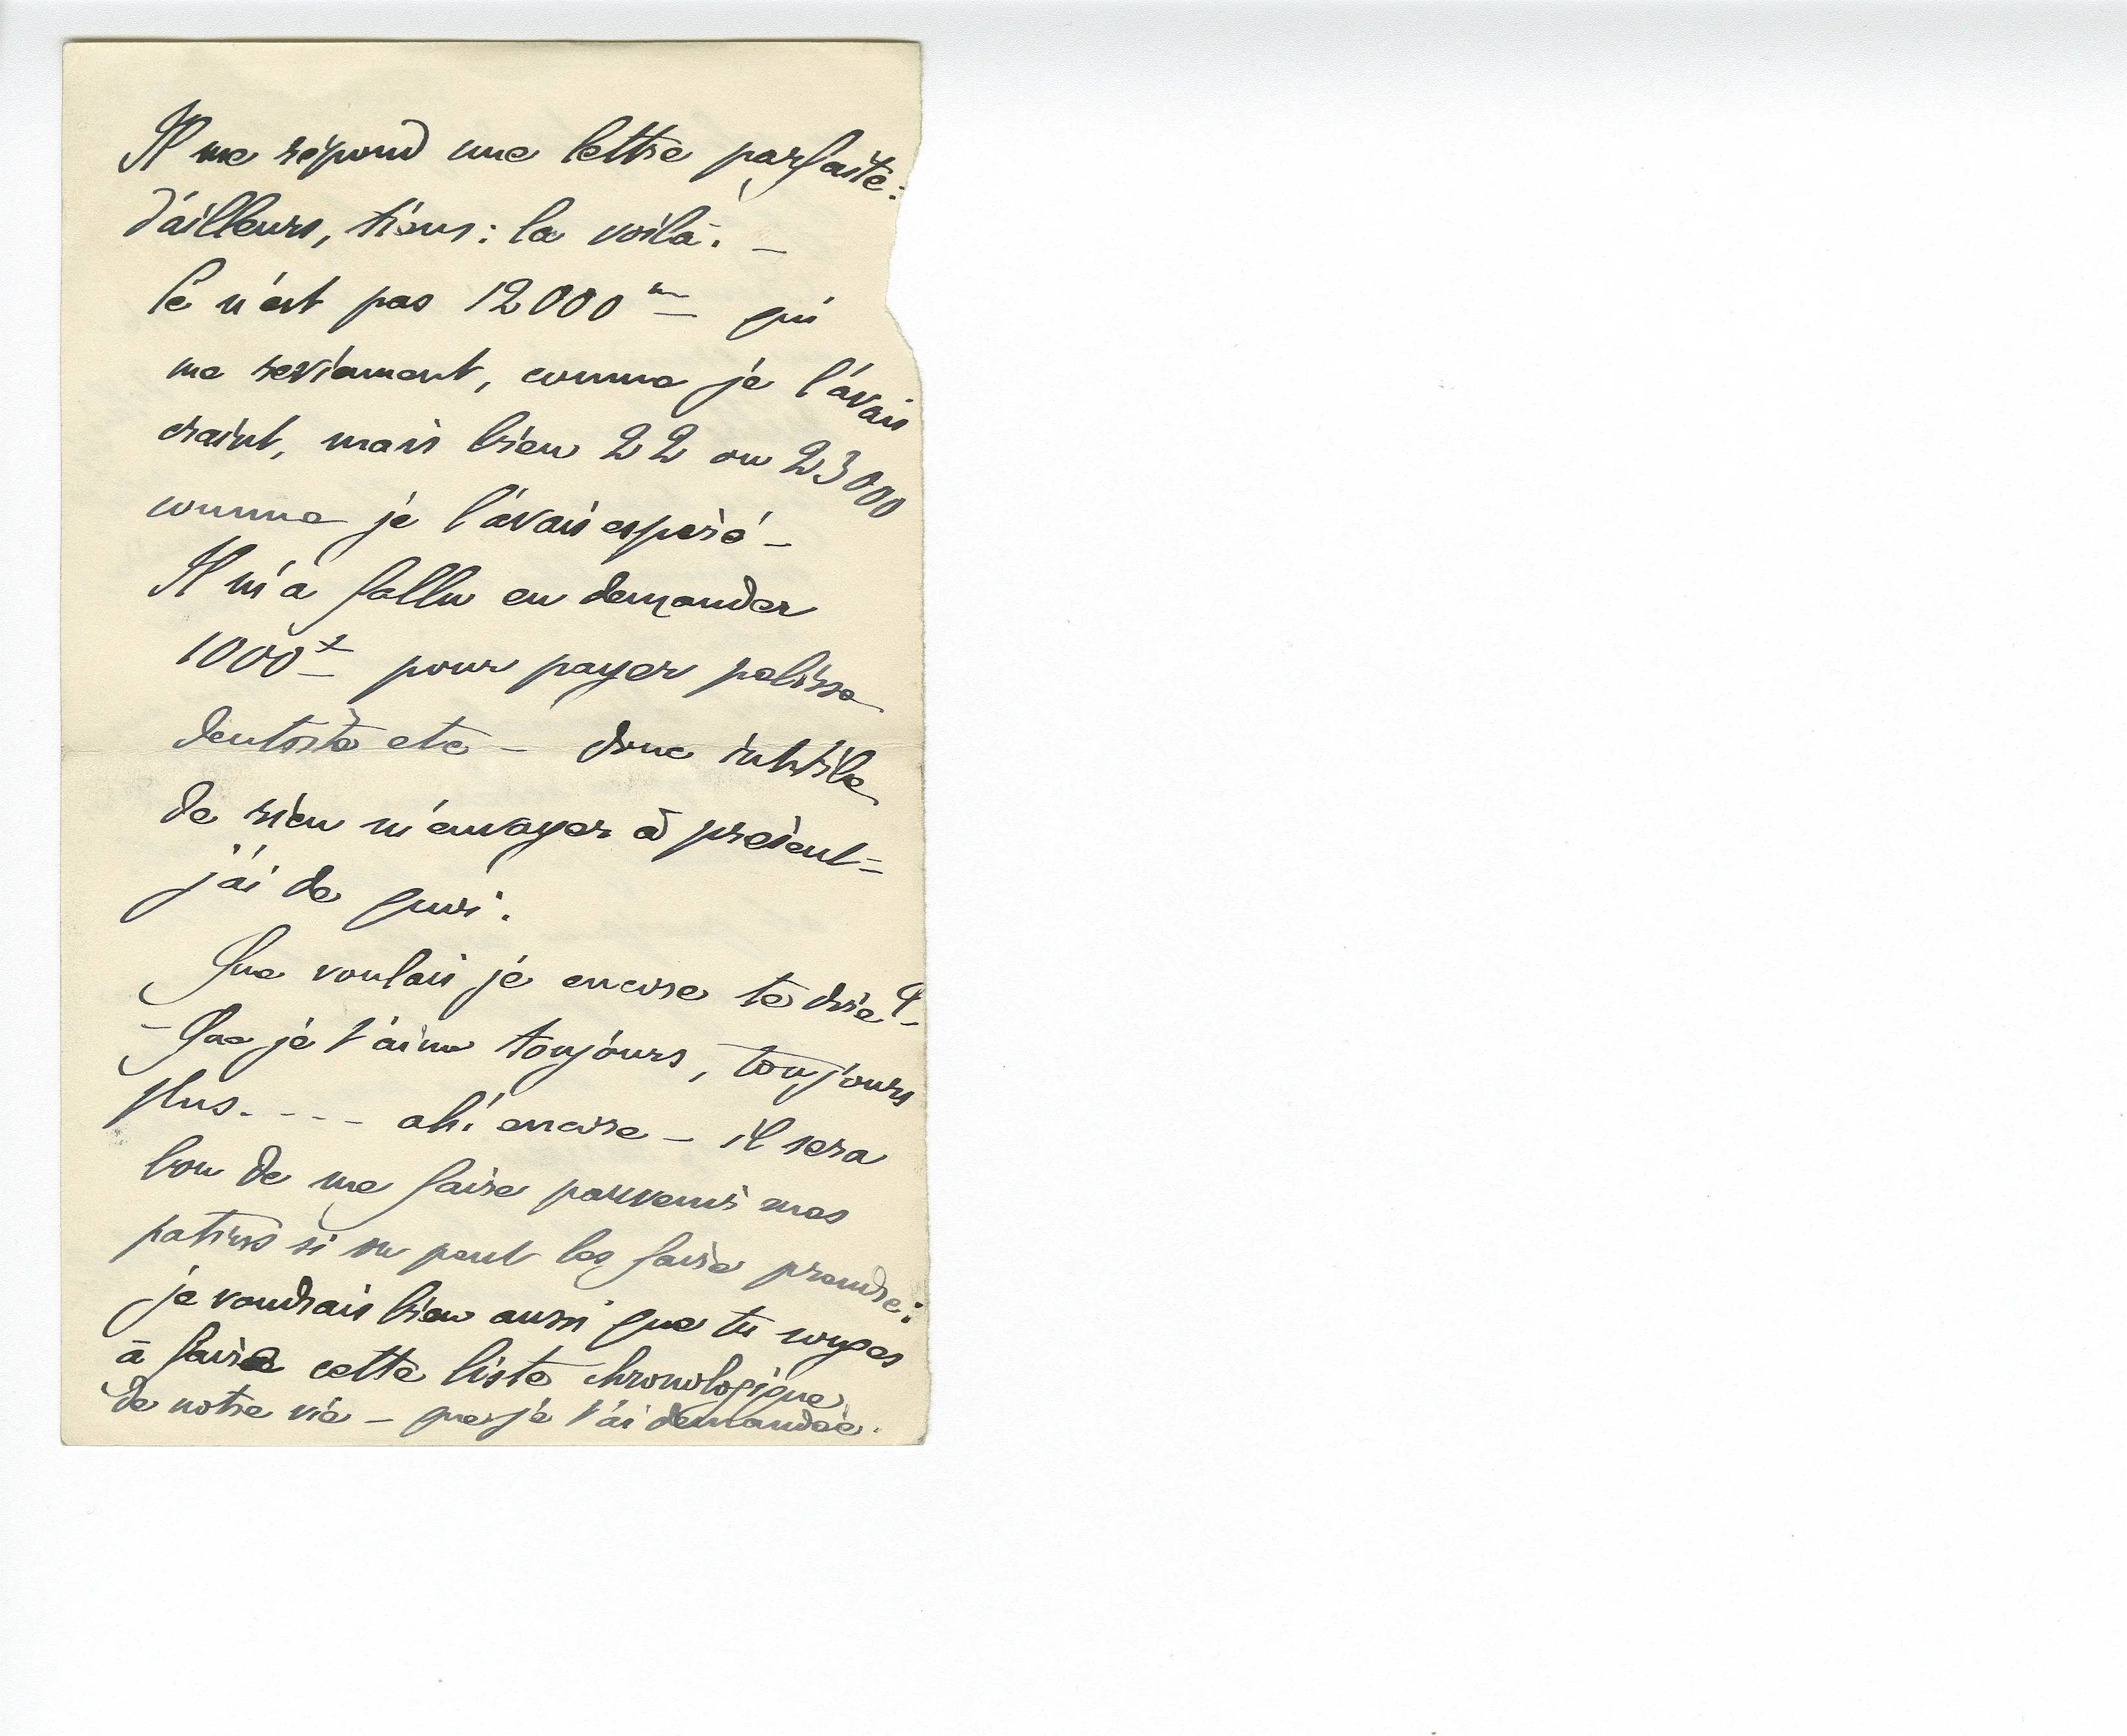 Il me répond une lettre parfaite :
d'ailleurs, tiens : la voilà. –
Ce n'est pas 12000 m qui
me reviennent, comme je l'avais
craint, mais bien 22 ou 23000
comme je l'avais espéré –
Il m'a fallu en demander
1000 f pour payer pelisse
dentiste etc – donc inutile
de rien m'envoyer à présent –
j'ai de quoi.
Que voulais je encore te dire ? –
– Que je t'aime toujours, toujours
plus. - - - ah ! encore – il sera
bon de me faire parvenir mes
patins si on peut les faire prendre :
je voudrais bien aussi que tu songes
à faire cette liste chronologique
de notre vie – que je t'ai demandée.